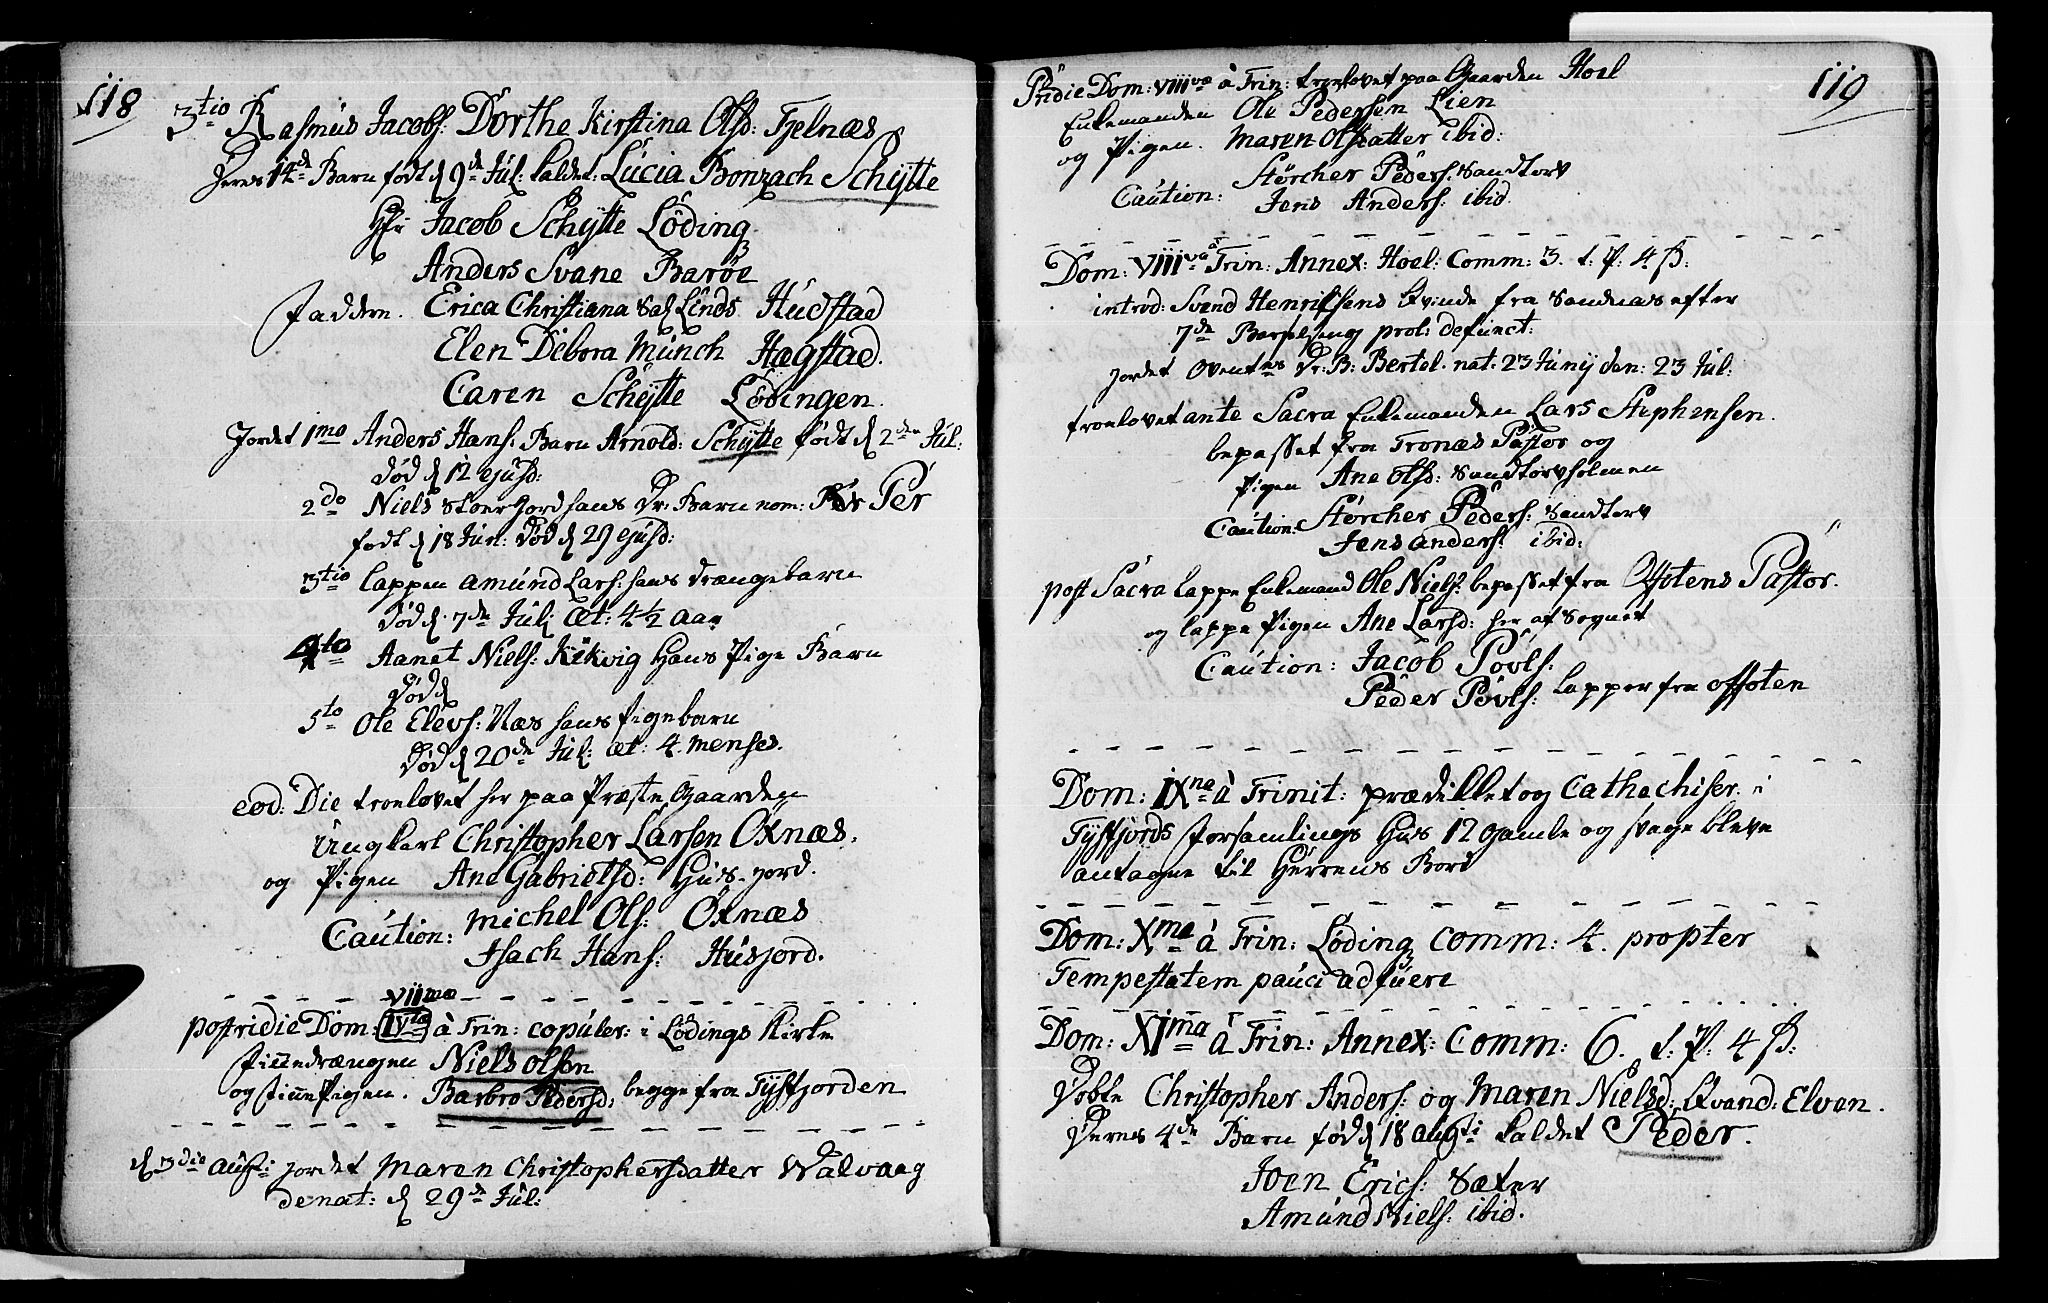 118
3tio Rasmus Jacobs: Dorthe Kirstina Olsd: Fjelnæs
Deres 14de Barn født d 9de Jul: kaldet: Lucia Bonzach Schytte
Hr: Jacob Schytte Löding
Anders Svane Baröe
Faddere. Erica Christiana Sal Linds Hudstad
Elen Debora Münch Hægstad.
Caren Schytte Lödingen.
Jordet 1mo Anders Hans: Barn Arnold: Schytte født d 2den Jul:
død d 12 ejusd:
2do Niels Stoerfjord hans Dr: Barn nom: Per
født d 18 Jun: død d 29 ejusd:
3tio Lappen Amund Lars: hans drængebarn
død d. 7de Jul: æt: 4½ Aar
4to Aanet Niels: Kikvig Hans Pige Barn
død d
5to Ole Elevs: Næs hans Pigebarn
død d 20de Jul: æt: 4. menses.
eod: Die troelovet her paa Præste Gaarden
Ungkarl Christopher Larsen Oxnæs.
og Pigen Ane Gabrielsd: Husjord.
Caution: Michel Ols: Oxnæs
Isach Hans: Husjord.
VIImæ
postridie Dom: IVta à Trin: copuler: i Lödings Kirke
Finnedrængen Niels Olsen
og Finne Pigen. Barbro Pedersd: begge fra Tysfjorden
d 3die Augti jordet Maren Christophersdatter Walvaag
denat: d 29de Jul:
119
Pridie Dom: VIIIvæ à Trin: troelovet paa Gaarden Hoel
Enkemanden Ole Pedersen Lien
og Pigen. Maren Olsdatter ibid:
Caution: Störcher Peders: Sandtorv
Jens Anders: ibid.
Dom: VIIIva à Trin: Annex: Hoel: Comm: 3. t. P: 4 ß:
introd: Svend Henrichsens Qvinde fra Sandnæs efter
7de Barselseng prol: defunct:
jordet Dr: B: Bertel. nat: 23 Junij den: 23 Jul:
troelovet ante Sacra Enkemanden Lars Stephensen.
bepasset fra Tronæs Pastor og
Pigen Ane Olsd: Sandtorvholmen
Caution: Störcher Peders: Sandtorv
Jens Anders: ibid:
post Sacra Lappe Enkemand Ole Niels: bepasset fra Ofotens Pastor.
og Lappe Pigen Ane Larsd: her af Sognet
Caution: Jacob Povls:
Peder Povls: Lapper fra Offoten
Dom: IXna à Trinit: prædikket og Cathechiser: i
Tysfjords Forsamlings Hus 12 gamle og svage bleve
antagne til Herrens Bord
Dom: Xma à Trin: Löding Comm: 4. propter
Tempestatem pauci adfuere
Dom: XIma à Trin: Annex: Comm: 6. t. P: 4 ß:
Döbte Christopher Anders: og Maren Nielsd: Qvand: Elven.
Deres 4de Barn föd d 18 Augti kaldet Peder.
Joen Erics: Sæter
Amund Niels: ibid.